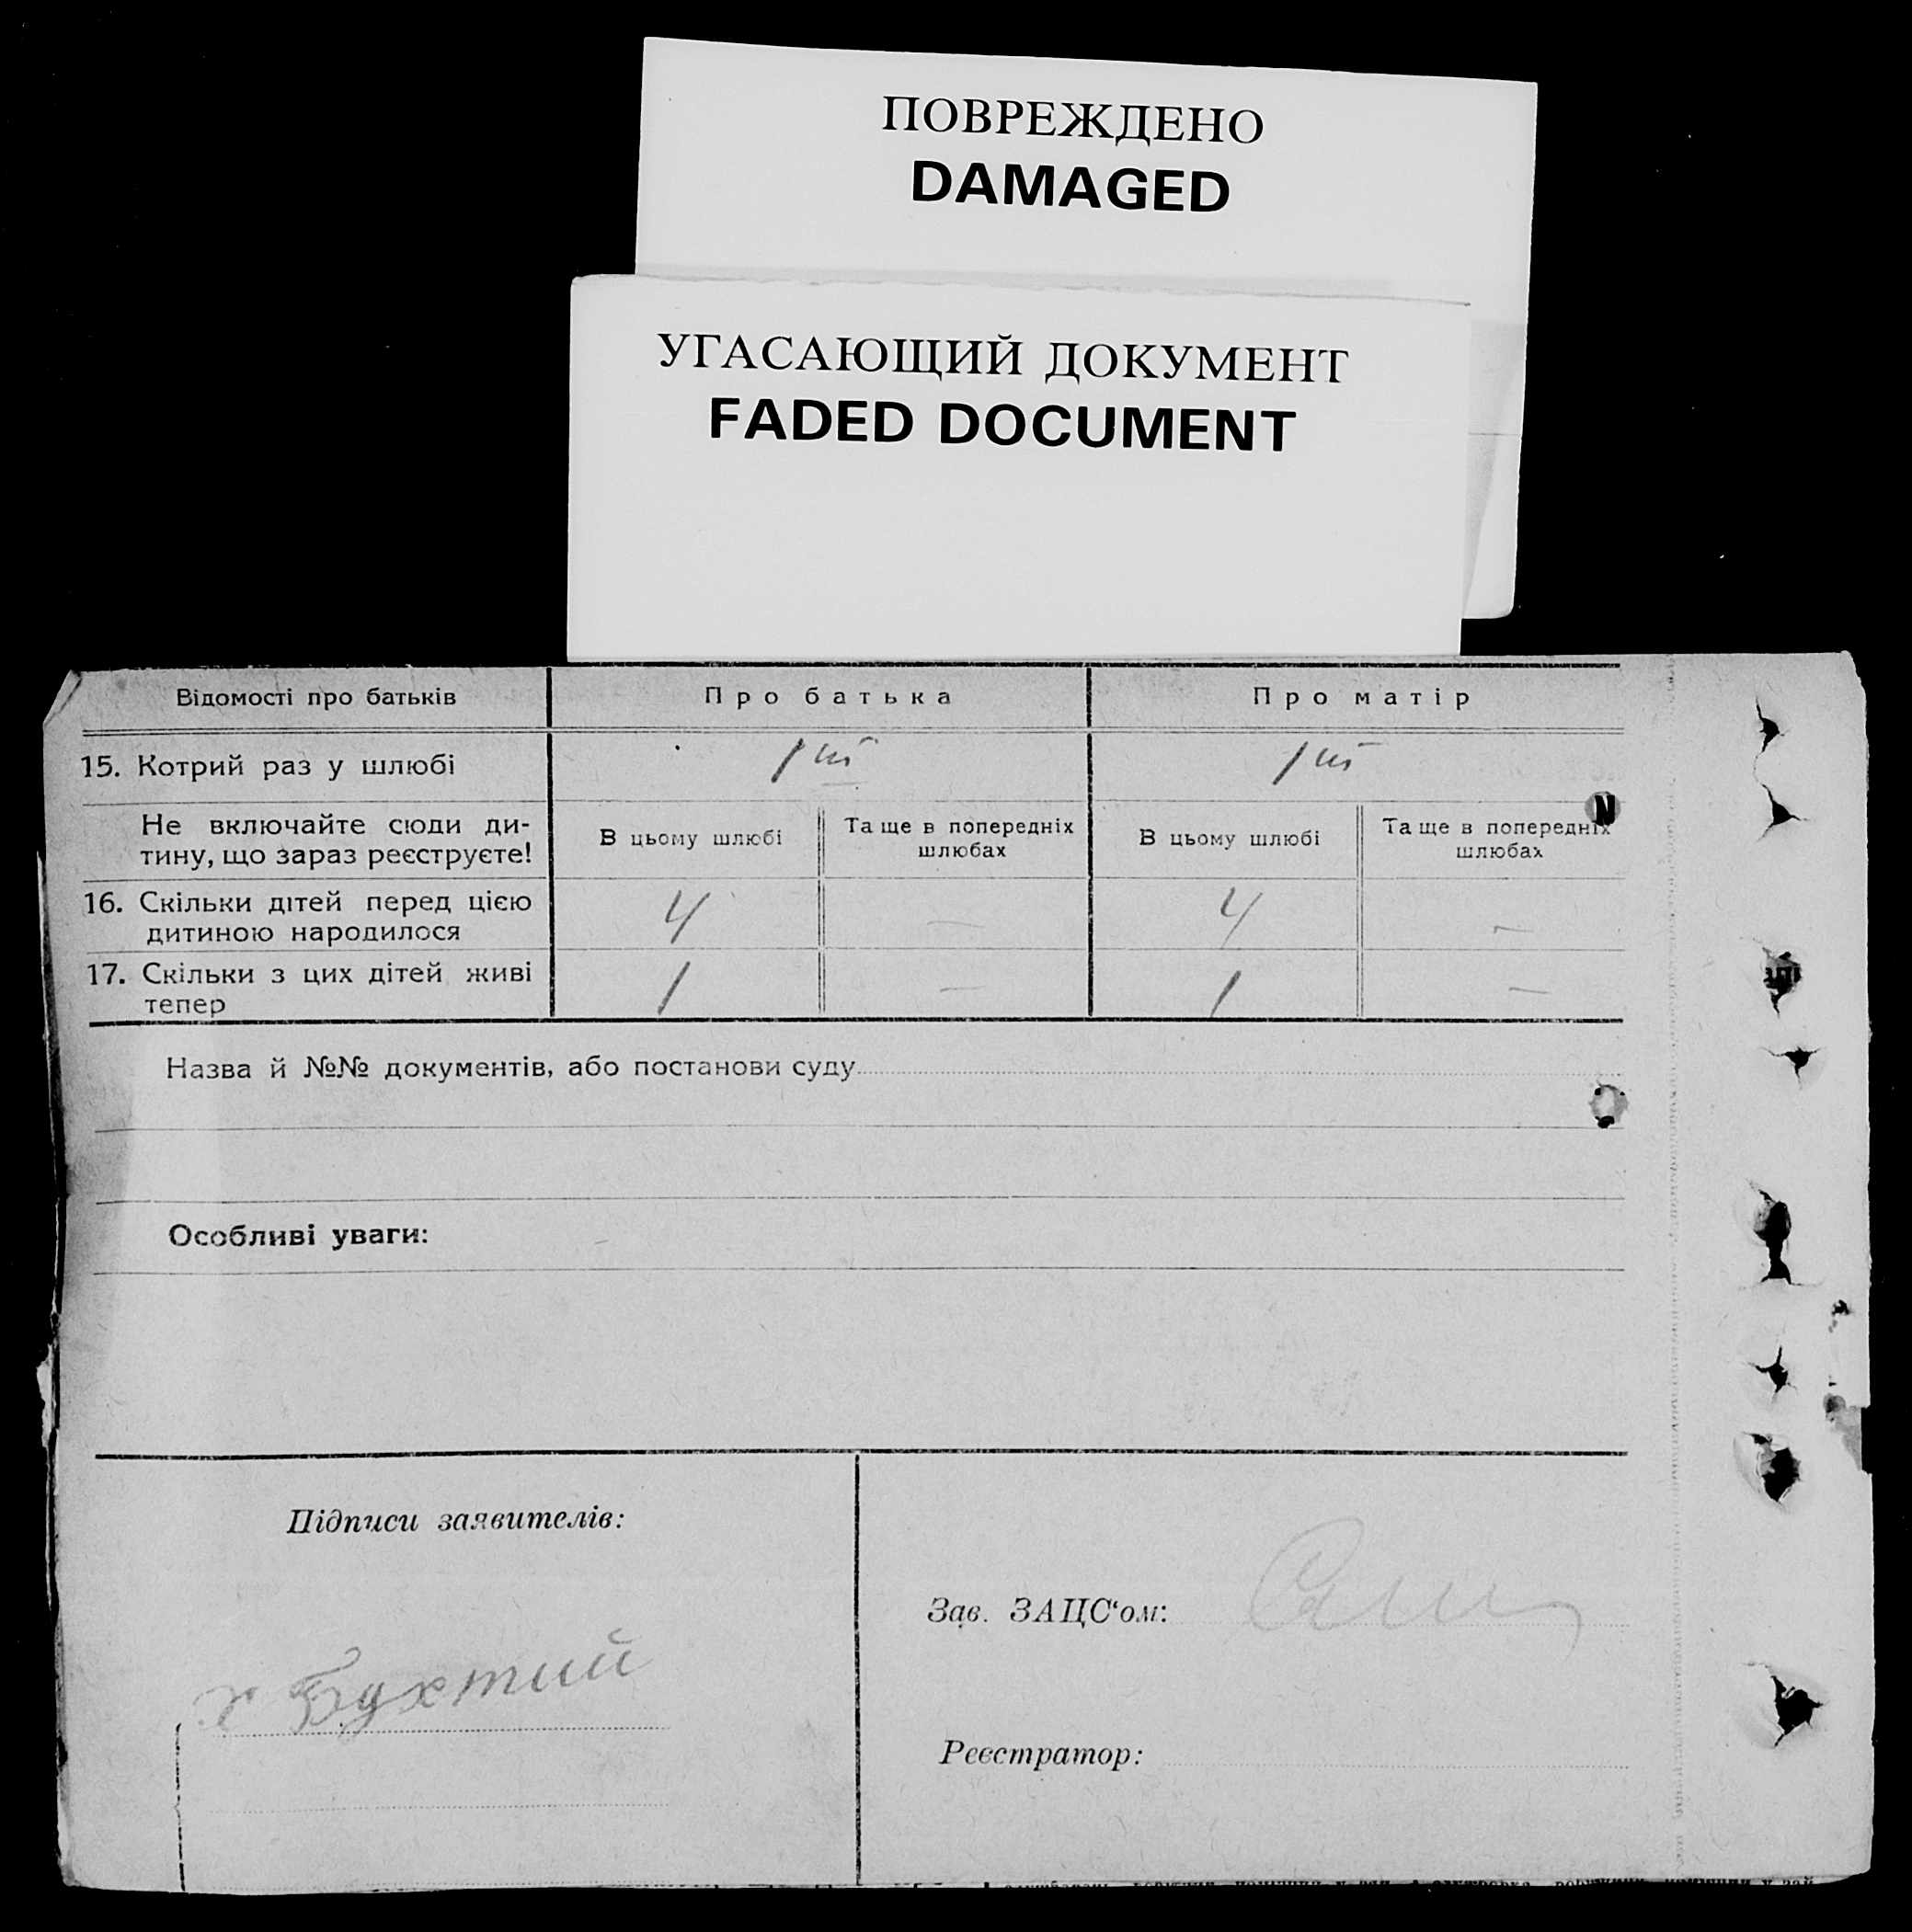 ПОВРЕЖДЕНО
DAMAGED
УГАСАЮЩИЙ ДОКУМЕНТ
FADED DOCUMENT
Відомості про батьків Про батька Про матір
15. Котрий раз у шлюбі 1ий 1ий
Не включайте сюди ди-
тину, що зараз реєструєте!
В цьому шлюбі Та ще в попередніх шлюбах В цьому шлюбі Та ще в попередніх шлюбах
16. Скільки дітей перед цією 4 — 4 —
дитиною народилося
17. Скільки з цих дітей живі 1 — 1 —
тепер
Назва й №№ документів, або постанови суду
Особливі уваги:
Підписи заявителів:
Зав. ЗАЦС‘ом:
Бухтий
Реєстратор: